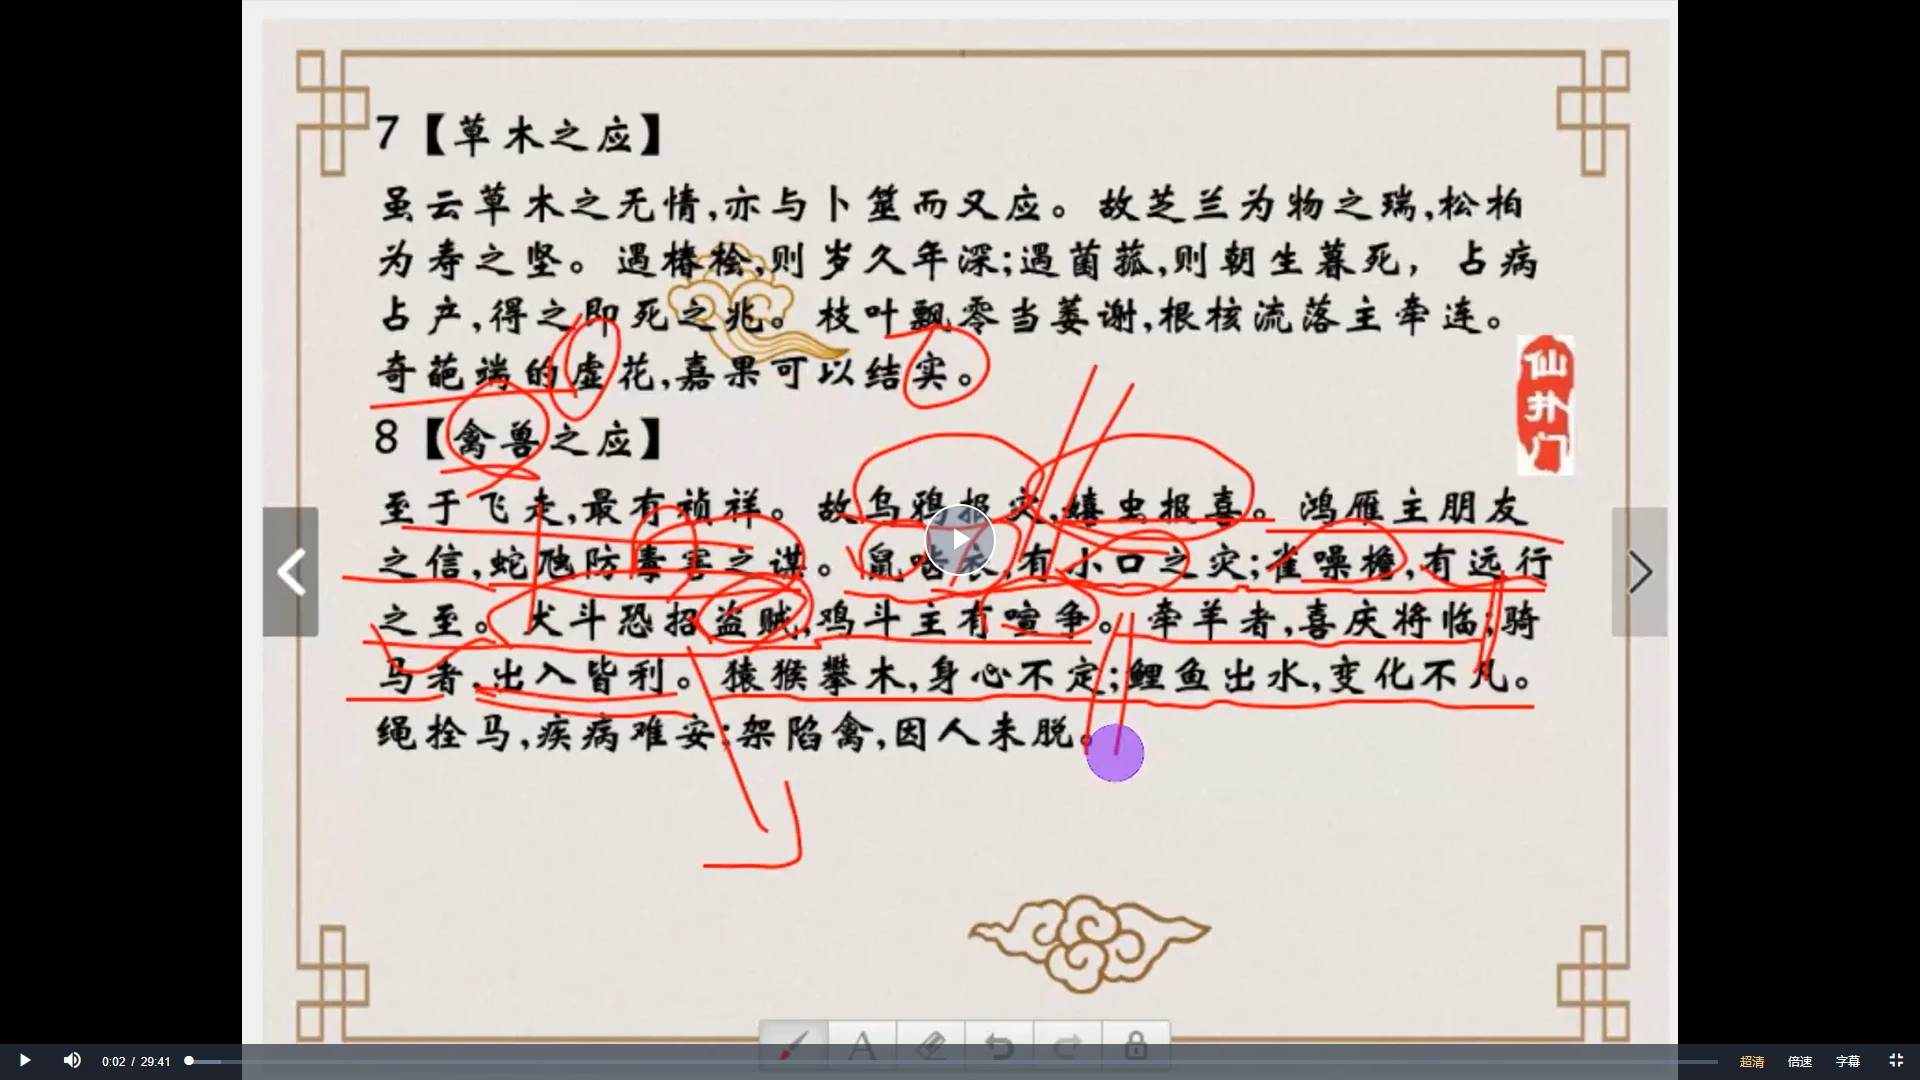 7【草木之应】
虽云草木之无情,亦与卜筮而又应。故芝兰为物之瑞,松柏
为寿之坚。遇椿桧,则岁久年深;遇菌菰,则朝生暮死，占病
占产,得之即死之兆。枝叶飘零当萎谢,根核流落主牵连。
奇葩端的虚花,嘉果可以结实。
8【禽兽之应】
至于飞走,最有祯祥。故乌鸦报灾,蟢虫报喜。鸿雁主朋友
之信,蛇虺防毒害之谋。鼠啮衣,有小口之灾;雀噪檐,有远行
之至。犬斗恐招盗贼,鸡斗主有喧争。牵羊者,喜庆将临;骑
马者,出入皆利。猿猴攀木,身心不定;鲤鱼出水,变化不凡。
绳拴马,疾病难安;架陷禽,因人未脱。
仙井门
A
0:02 / 29:41
超清 倍速 字幕